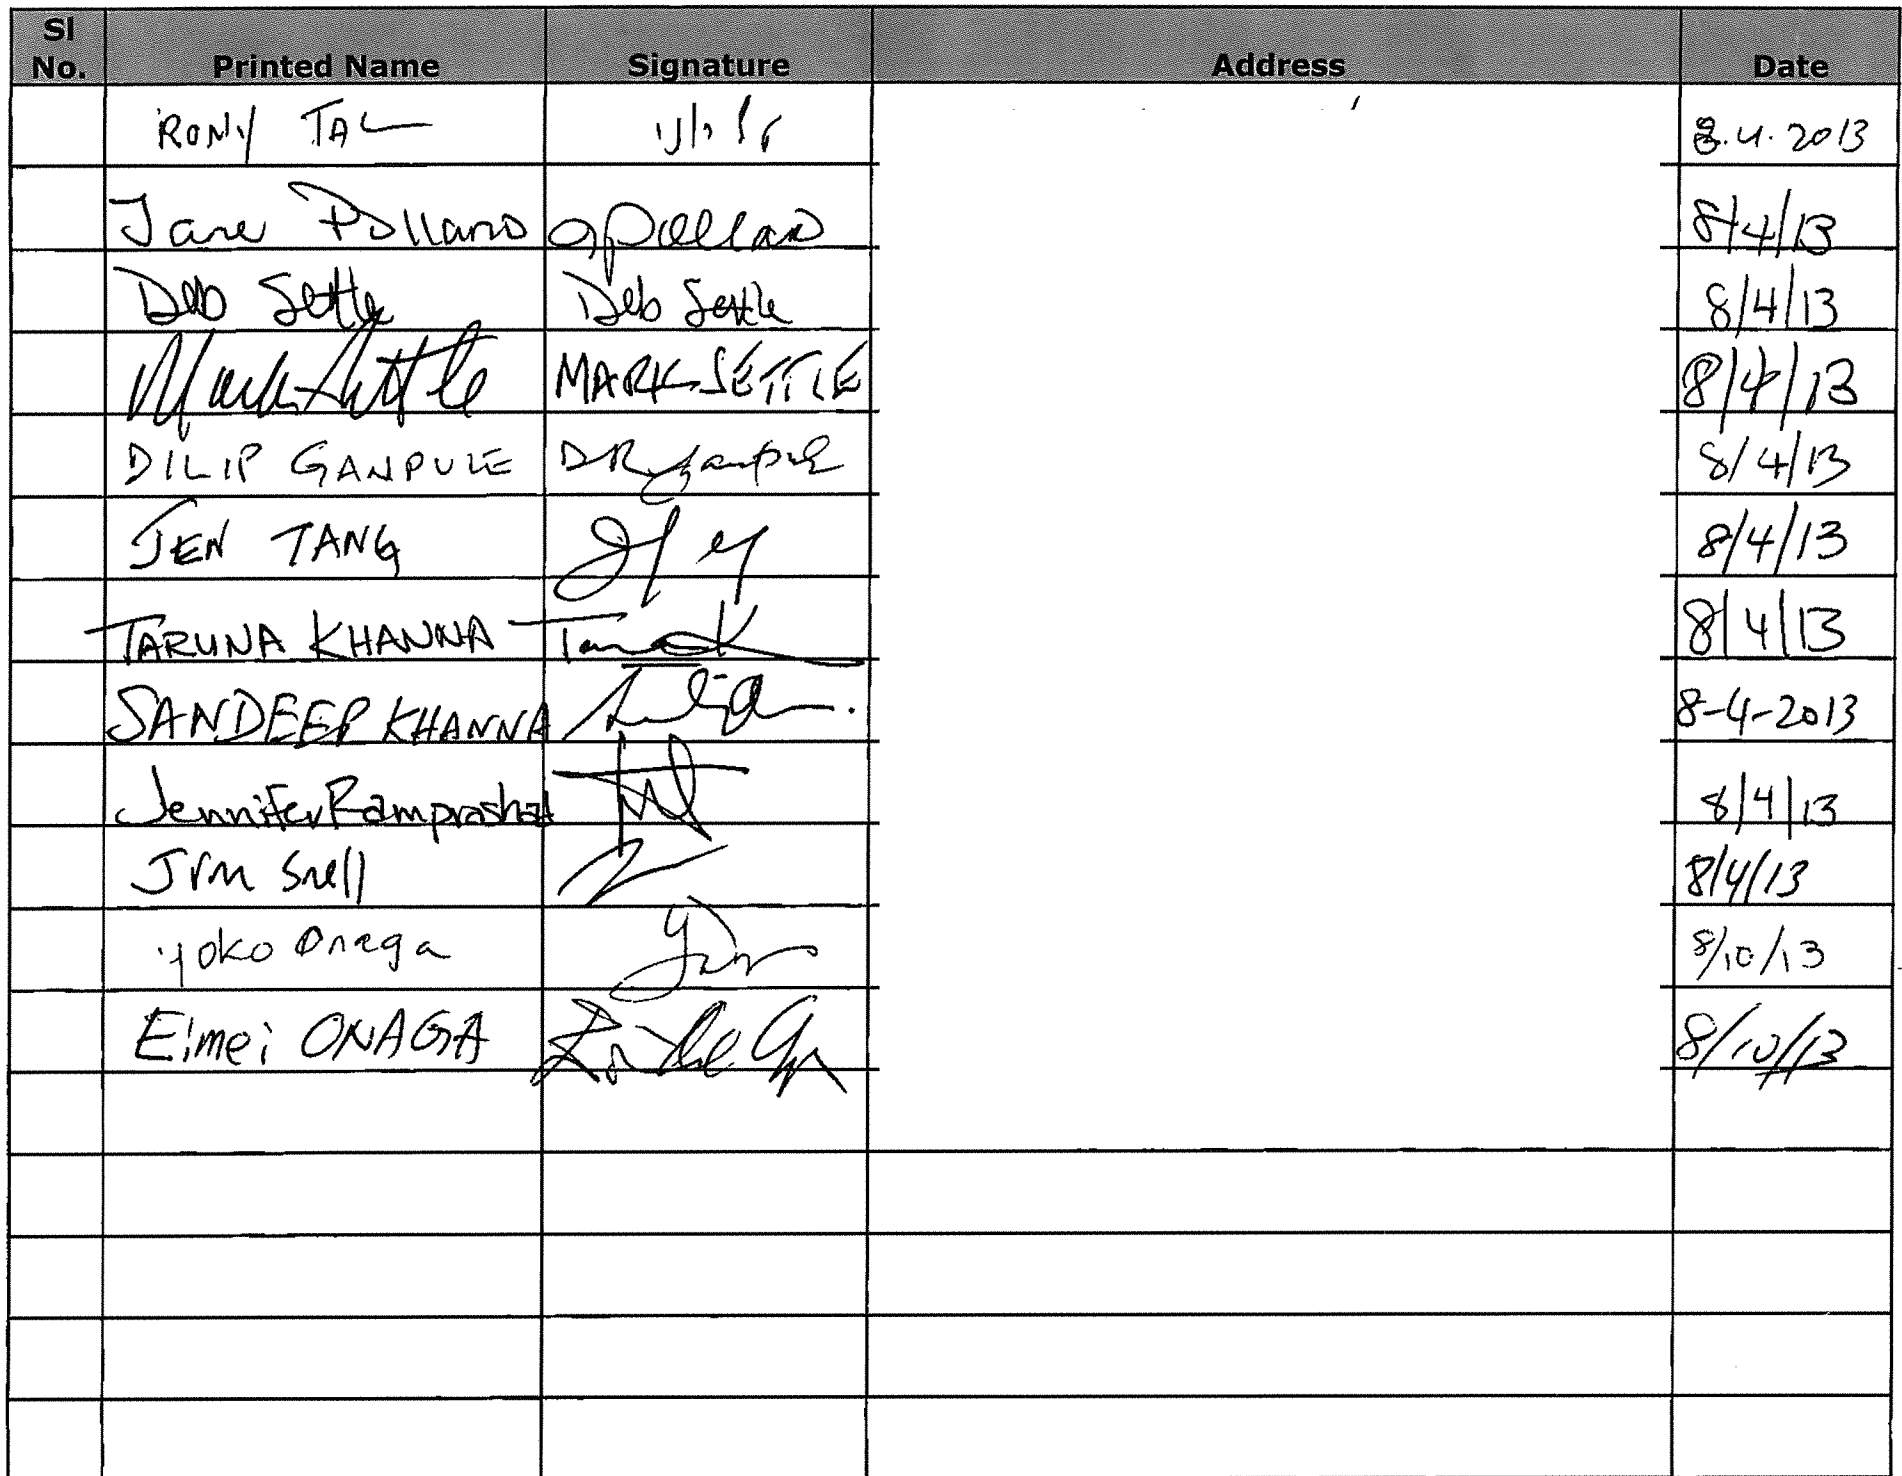 Sl No. Printed Name Signature Address Date
RONY TAL 8.4.2013
Jane Pollard JPollard 8/4/13
Deb Settle Deb Settle 8/4/13
Mark Settle MARK SETTLE 8/4/13
DILIP GANPULE DRGanpule 8/4/13
JEN TANG 8/4/13
TARUNA KHANNA 8/4/13
SANDEEP KHANNA 8-4-2013
Jennifer Ramprashad 8/4/13
Jim Snell 8/4/13
yoko Onaga 8/10/13
Eimei ONAGA 8/10/13